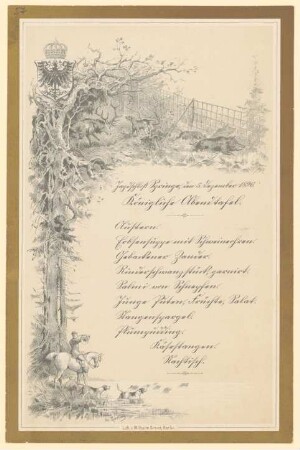 Jagdschloß Springe, den 5. Dezember 1896.
Königliche Abendtafel.
Austern.
Erbsensuppe mit Schweinsohren.
Gebackener Zander.
Rinderschwanzstück, garnirt.
Salmi von Schnepfen.
Junge Puten, Früchte, Salat.
Stangenspargel.
Plumpudding.
Käsestangen.
Nachtisch.